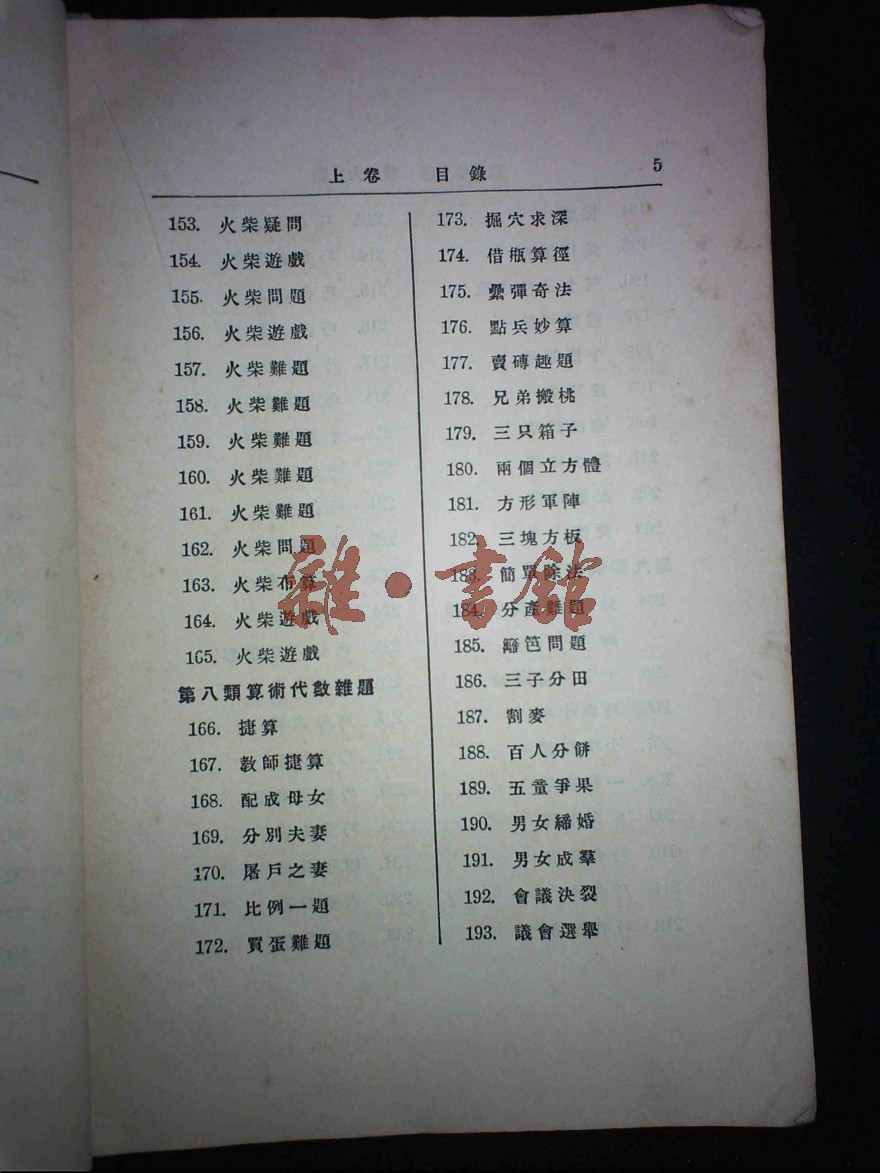 上卷 目錄 5
153. 火柴疑問
154. 火柴遊戲
155. 火柴問題
156. 火柴遊戲
157. 火柴難題
158. 火柴難題
159. 火柴難題
160. 火柴難題
161. 火柴難題
162. 火柴問題
163. 火柴布算
164. 火柴遊戲
165. 火柴遊戲
第八類算術代數雜題
166. 捷算
167. 教師捷算
168. 配成母女
169. 分別夫妻
170. 屠戶之妻
171. 比例一題
172. 買蛋難題
173. 掘穴求深
174. 借瓶算徑
175. 纍彈奇法
176. 點兵妙算
177. 賣磚趣題
178. 兄弟搬桃
179. 三只箱子
180. 兩個立方體
181. 方形軍陣
182. 三塊方板
183. 簡單除法
184. 分產難題
185. 籬笆問題
186. 三子分田
187. 割麥
188. 百人分餅
189. 五童爭果
190. 男女締婚
191. 男女成羣
192. 會議決裂
193. 議會選舉
雜·書館